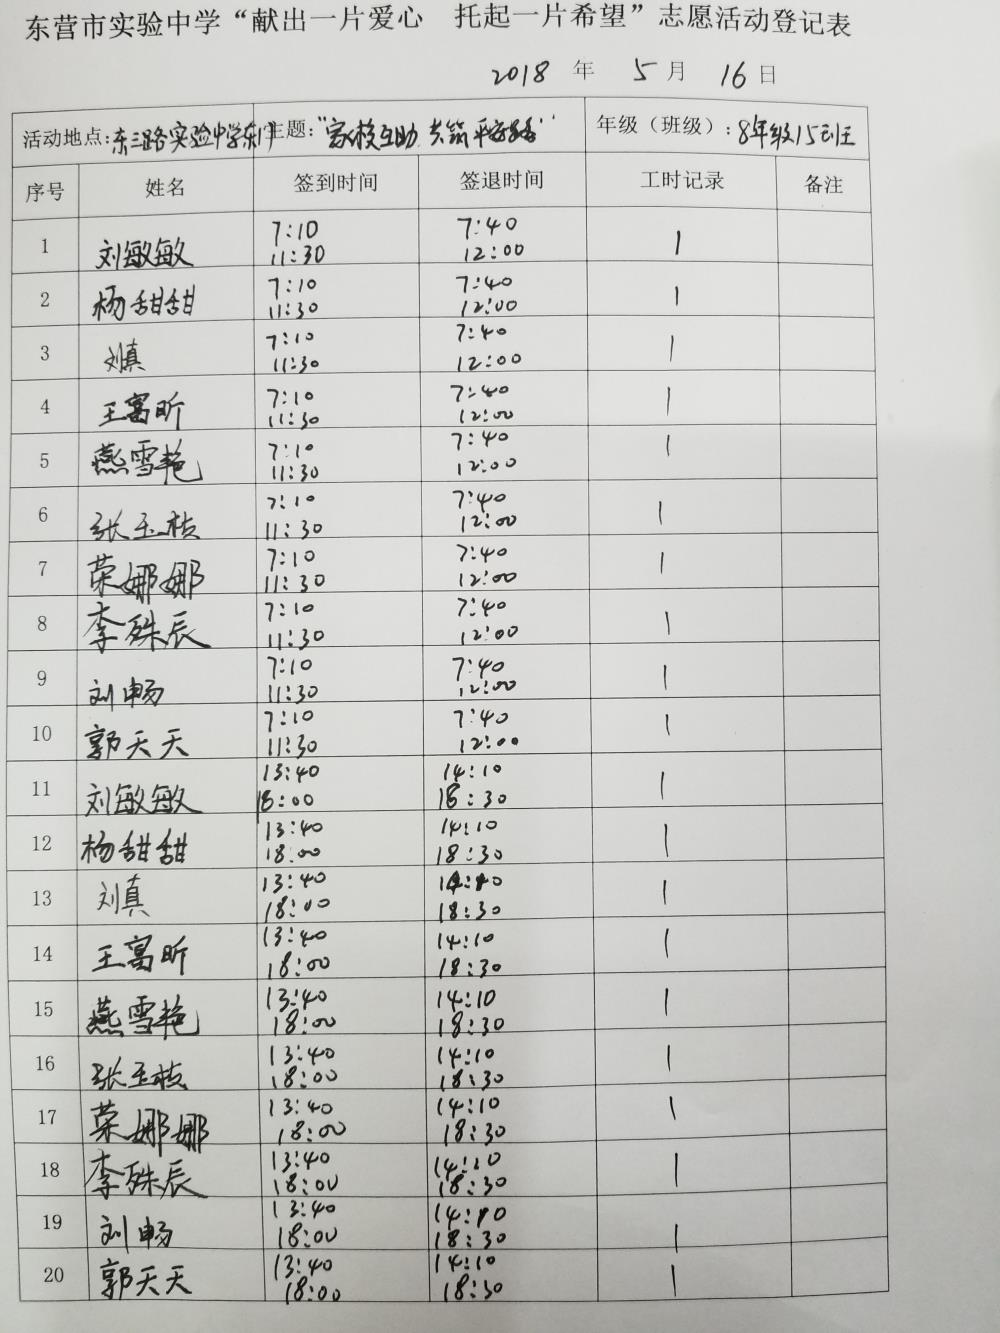 东营市实验中学“献出一片爱心 托起一片希望”志愿活动登记表
2018 年 5 月 16 日
活动地点:东三路实验中学东门 主题:“家校互助 共筑平安路” 年级（班级）:8年级15班
序号 姓名 签到时间 签退时间 工时记录 备注
1 刘敏敏 7:10 7:40 1
11:30 12:00
2 杨甜甜 7:10 7:40 1
11:30 12:00
3 刘真 7:10 7:40 1
11:30 12:00
4 王富昕 7:10 7:40 1
11:30 12:00
5 燕雪艳 7:10 7:40 1
11:30 12:00
6 张玉枝 7:10 7:40 1
11:30 12:00
7 荣娜娜 7:10 7:40 1
11:30 12:00
8 李殊辰 7:10 7:40 1
11:30 12:00
9 刘畅 7:10 7:40 1
11:30 12:00
10 郭天天 7:10 7:40 1
11:30 12:00
11 刘敏敏 13:40 14:10 1
18:00 18:30
12 杨甜甜 13:40 14:10 1
18:00 18:30
13 刘真 13:40 14:10 1
18:00 18:30
14 王富昕 13:40 14:10 1
18:00 18:30
15 燕雪艳 13:40 14:10 1
18:00 18:30
16 张玉枝 13:40 14:10 1
18:00 18:30
17 荣娜娜 13:40 14:10 1
18:00 18:30
18 李殊辰 13:40 14:10 1
18:00 18:30
19 刘畅 13:40 14:10 1
18:00 18:30
20 郭天天 13:40 14:10 1
18:00 18:30